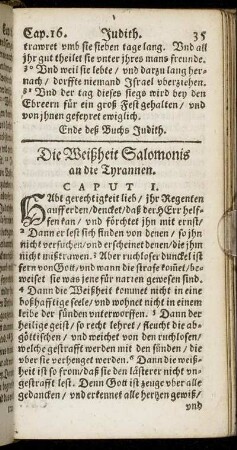 Cap. 16. Judith. 35
trawret vmb sie sieben tage lang. Vnd all
jhr gut theilet sie vnter jhres mans freunde.
³⁰ Vnd weil sie lebte / vnd darzu lang her-
nach / dorffte niemand Israel vberziehen.
³¹ Vnd der tag dieses siegs wird bey den
Ebreern für ein groß Fest gehalten / vnd
von jhnen gefeyret ewiglich.
Ende deß Buchs Judith.
Die Weißheit Salomonis
an die Tyrannen.
CAPUT I.
HAbt gerechtigkeit lieb / jhr Regenten
auff erden / dencket / daß der HErr helf-
fen kan / vnd förchtet jhn mit ernst /
² Dann er lest sich finden von denen / so jhn
nicht versuchen / vnd erscheinet denen / die jhm
nicht mißtrawen. ³ Aber ruchloser dunckel ist
fern von Gott / vnd wann die strafe komet / be-
weiset sie was jene für narren gewesen sind.
⁴ Dann die Weißheit kommet nicht in eine
boßhafftige seele / vnd wohnet nicht in einem
leibe der sünden vnterworffen. ⁵ Dann der
heilige geist / so recht lehret / fleucht die ab-
göttischen / vnd weichet von den ruchlosen /
welche gestrafft werden mit den sünden / die
vber sie verhenget werden. ⁶ Dann die weiß-
heit ist so from / daß sie den lästerer nicht vn-
gestrafft lest. Denn Gott ist zeuge vber alle
gedancken / vnd erkennet alle hertzen gewiß /
vnd